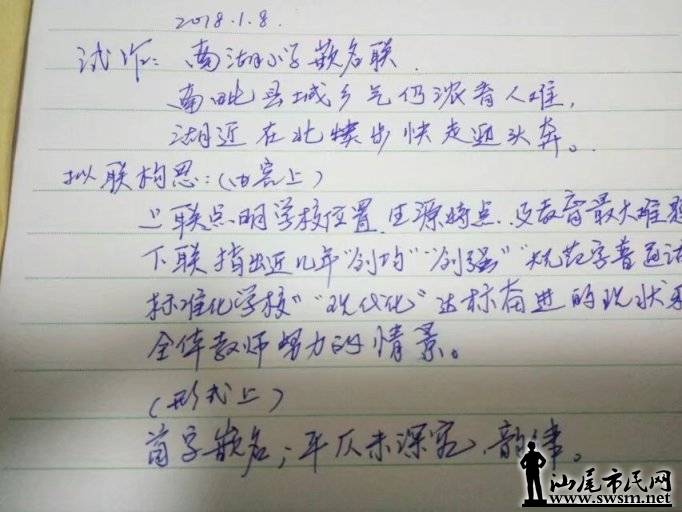 2018.1.8.
试作：南湖小学嵌名联.
南毗县城乡气仍浓育人难，
湖近在北犊步快走迎头奔。
拟联构思：（内容上）
上联点明学校位置、生源特点、及教育最大难题
下联指出近几年“创均”“创强”“规范字普通话
标准化学校”“现代化”达标奋进的现状及
全体教师努力的情景。
（形式上）
首字嵌名；平仄未深究、韵律。
汕尾市民网
www.swsm.net